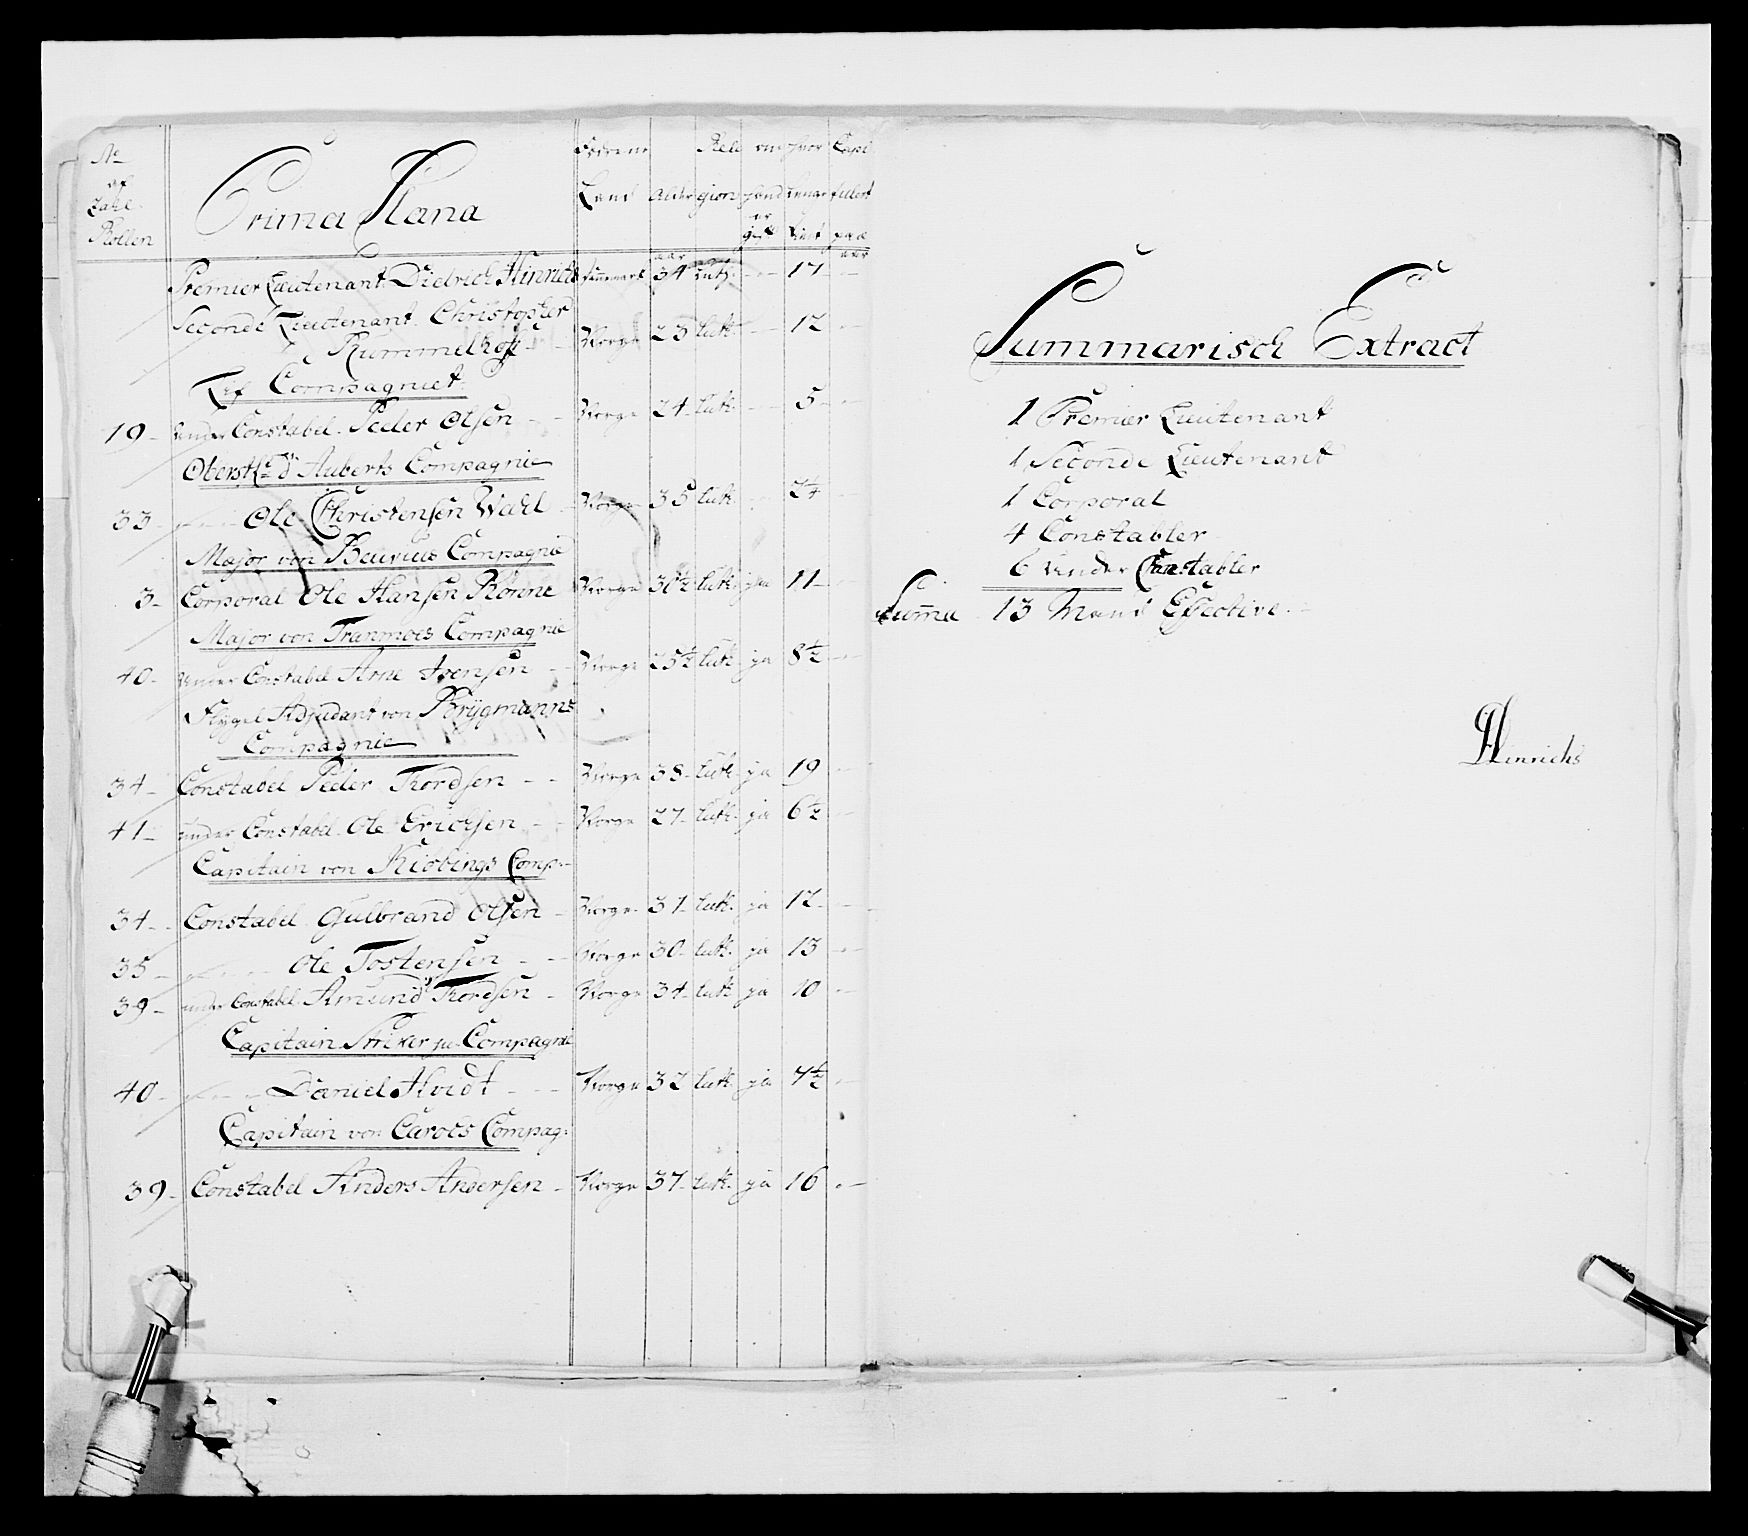 No af Zahl Rollen | Prima Plana | Land | Alder | Religion | om gift | hvor lenge tient | Capituleret paa
aar | aar
Premier Lieutenant Dietrich Hinrichs | Dannemark | 34 | Luth. | - | 17 | -
Seconde Lieutenant Christopher
Rummelhoff | Norge | 23 | luth | - | 12 | -
Lif Compagniet.
19 - under Constabel Peder Olsen - - | Norge | 24 | luth | - | 5 | -
Oberstlt d'Auberts Compagnie
33 - Ole Christensen Wahl | Norge | 35 | luth | - | 2½ | -
Major von Compagnie
3 - Corporal Ole Hansen Rønne | Norge | 30½ | luth | ja | 11 | -
Major von Tranmoes Compagnie
40 - under Constabel Arne Ivensen - | Norge | 25½ | luth | ja | 8½ | -
Flygel Adjudant von Brÿgmanns
Compagnie
34 - Constabel Peder Thordsen - - | Norge | 38 | luth | ja | 19 | -
41 - under Constabel Ole Erichsen - - | Norge | 27 | luth | ja | 6½ | -
Capitain von Kiobings Comp:
34 - Constabel Gulbrand Olsen - | Norge | 31 | luth. | ja | 12 | -
35 - Ole Tostensen - - | Norge | 30 | luth | ja | 13 | -
39 - under Constabel Amund Thordsen - | Norge | 34 | luth | ja | 10 | -
Capitain Striker ju. Compagnie
40 - Daniel Hvidt - - | Norge | 32 | luth | ja | 7½ | -
Capitain von Caroes Compag:
39 - Constabel Anders Andersen - | Norge | 37 | luth | ja | 16 | -
Summarisch Extract
1 Premier Lieutenant
1 Seconde Lieutenant
1 Corporal
4 Constabler
6 Under Constabler
Summa 13 Mand Effective.
Hinrichs